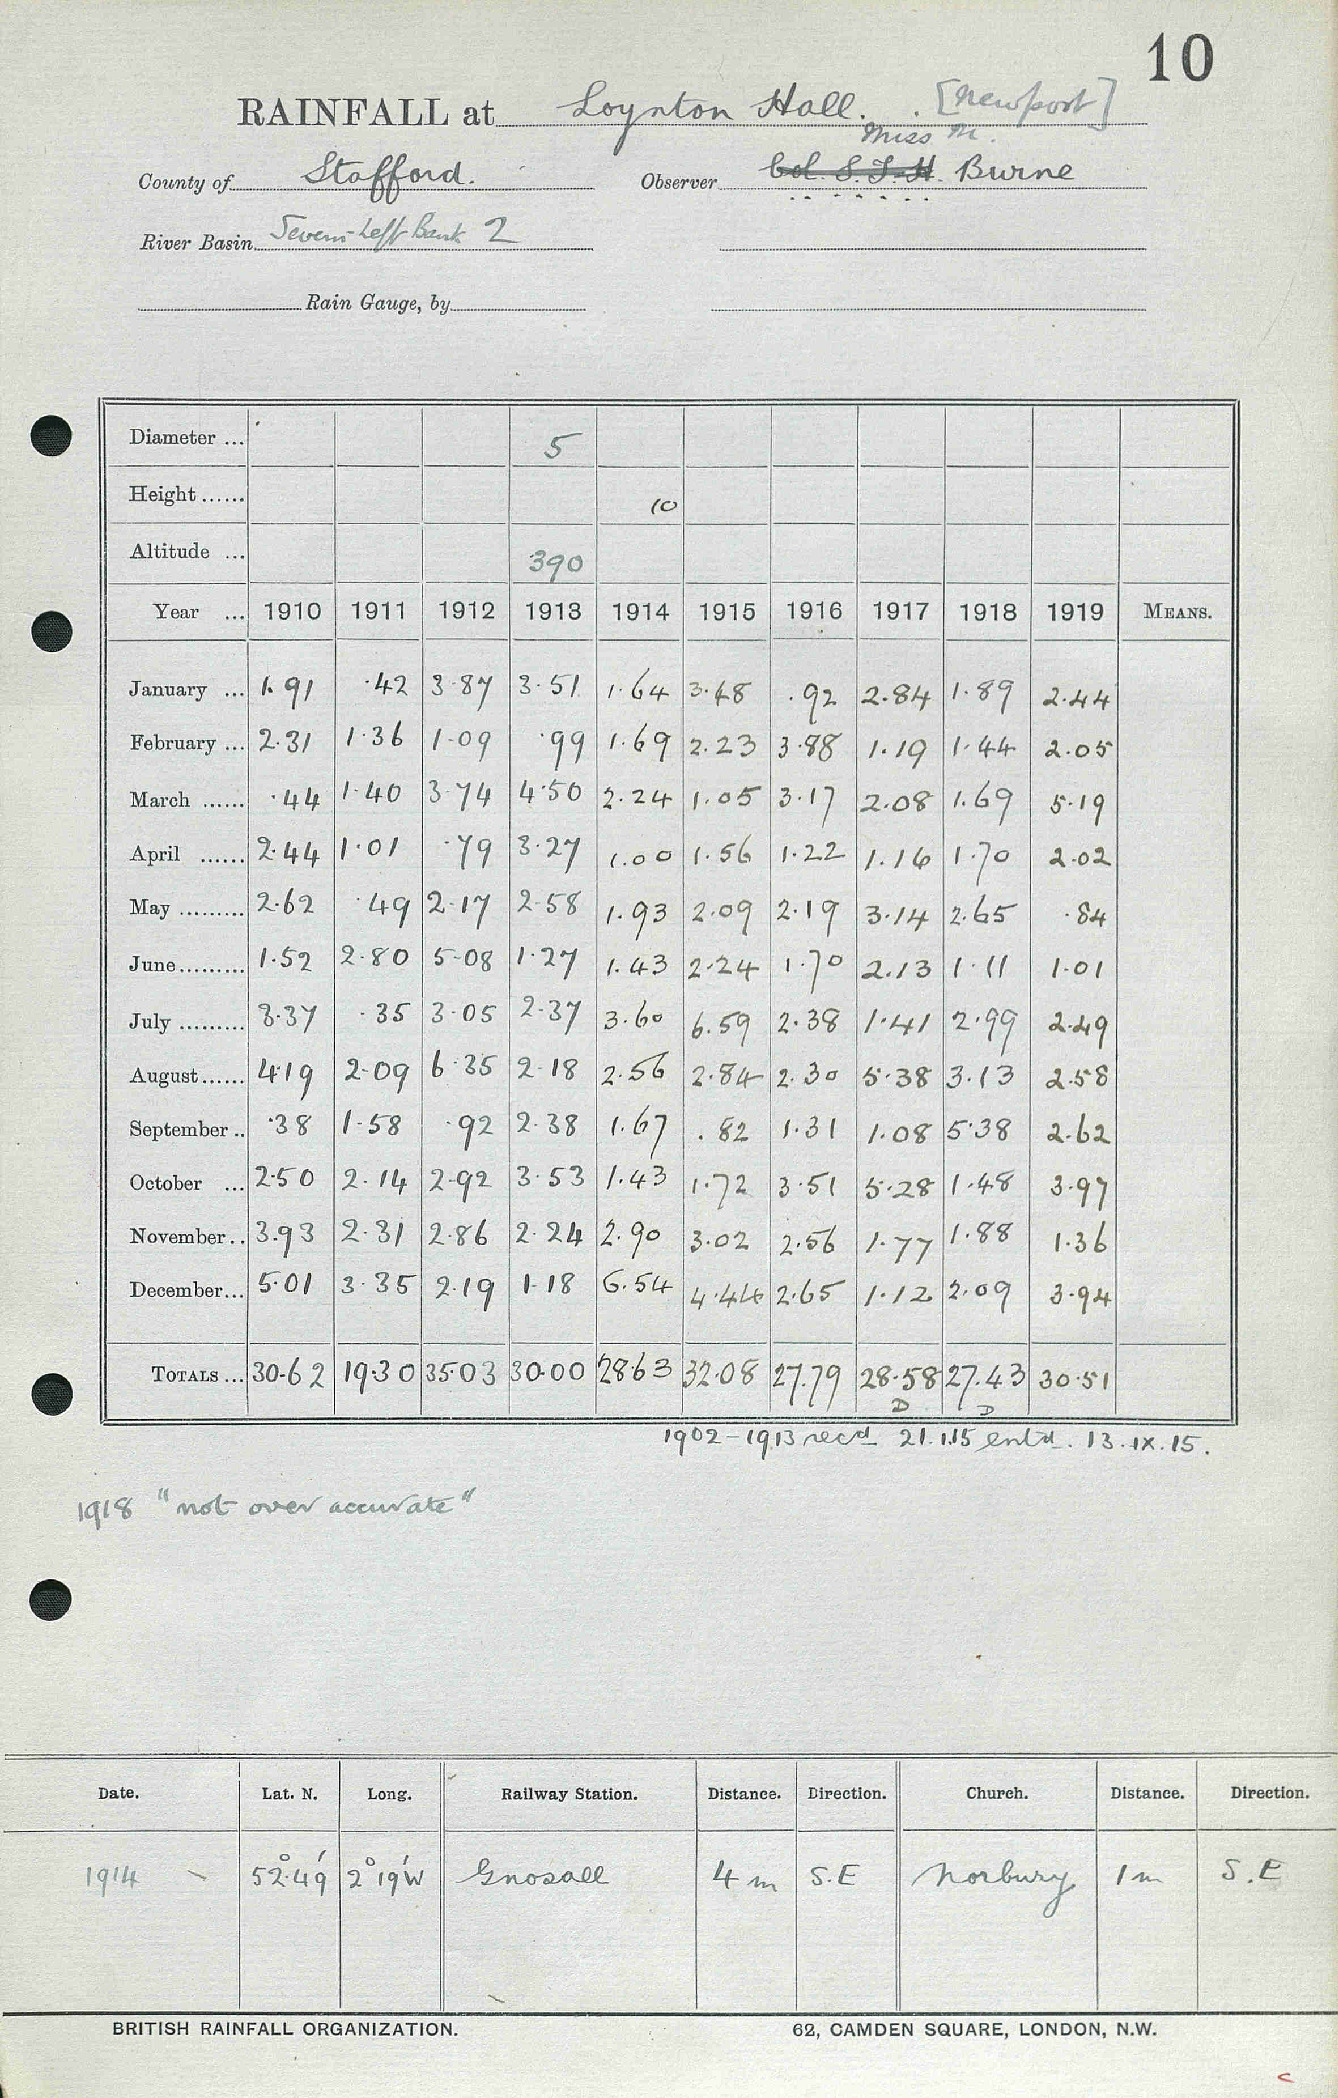 10
RAINFALL at Loynton Hall. [Newport]
Miss M.
County of Stafford. Observer Col. S.T.H. Burne
River Basin Severn Left Bank 2
Rain Gauge, by
Diameter ... 5
Height ...... 10
Altitude ... 390
Year ... 1910 1911 1912 1913 1914 1915 1916 1917 1918 1919 MEANS.
January ... 1.91 .42 3.87 3.51 1.64 3.48 .92 2.84 1.89 2.44
February ... 2.31 1.36 1.09 .99 1.69 2.23 3.88 1.19 1.44 2.05
March ...... .44 1.40 3.74 4.50 2.24 1.05 3.17 2.08 1.69 5.19
April ...... 2.44 1.01 .79 3.27 1.00 1.56 1.22 1.16 1.70 2.02
May ......... 2.62 .49 2.17 2.58 1.93 2.09 2.19 3.14 2.65 .84
June ......... 1.52 2.80 5.08 1.27 1.43 2.24 1.70 2.13 1.11 1.01
July ......... 3.37 .35 3.05 2.37 3.60 6.59 2.38 1.41 2.99 2.49
August ...... 4.19 2.09 6.35 2.18 2.56 2.84 2.30 5.38 3.13 2.58
September .. .38 1.58 .92 2.38 1.67 .82 1.31 1.08 5.38 2.62
October ... 2.50 2.14 2.92 3.53 1.43 1.72 3.51 5.28 1.48 3.97
November .. 3.93 2.31 2.86 2.24 2.90 3.02 2.56 1.77 1.88 1.36
December ... 5.01 3.35 2.19 1.18 6.54 4.44 2.65 1.12 2.09 3.94
TOTALS ... 30.62 19.30 35.03 30.00 28.63 32.08 27.79 28.58 27.43 30.51
D D
1902-1913 recd 21.1.15 entd. 13.IX.15.
1918 "not over accurate"
Date. Lat. N. Long. Railway Station. Distance. Direction. Church. Distance. Direction.
1914 52°49' 2°19'W Gnosall 4 m S.E Norbury 1 m S.E
BRITISH RAINFALL ORGANIZATION. 62, CAMDEN SQUARE, LONDON, N.W.
c